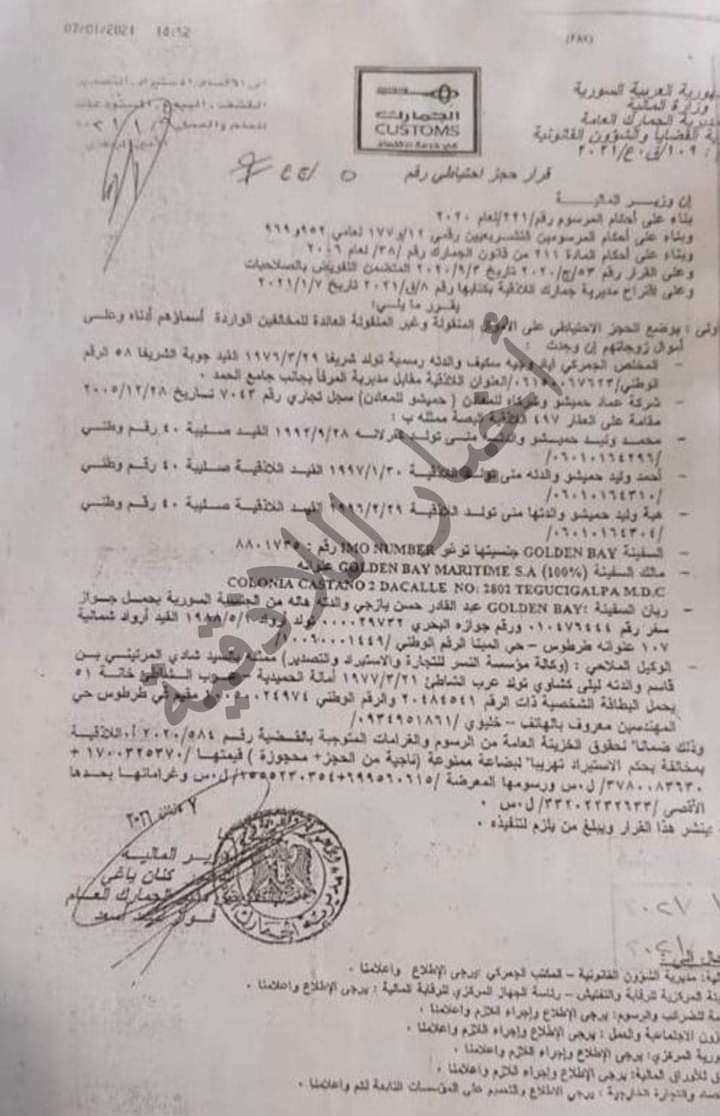 07/01/2021 14:52
(FAX)
الجمارك
CUSTOMS
الجمهورية العربية السورية
وزارة المالية
مديرية الجمارك العامة
القضايا والشؤون القانونية
١٠٩/ق/ع/٢٠٢١
قرار حجز احتياطي رقم
إن وزير المالية
بناء على أحكام المرسوم رقم /٢٢١/ لعام ٢٠٢٠
وبناء على أحكام المرسومين التشريعيين رقمي ١٢ و١٧٧ لعامي ٩٥٢ و٩٦٩
وبناء على أحكام المادة ٢١١ من قانون الجمارك رقم /٣٨/ لعام ٢٠٠٦
وعلى القرار رقم ٥٣/ج/٢٠٢٠ تاريخ ٢٠٢٠/٩/٣ المتضمن التفويض بالصلاحيات
وعلى اقتراح مديرية جمارك اللاذقية بكتابها رقم ٨/ق/٢٠٢١ تاريخ ٢٠٢١/١/٧
يقرر ما يلي:
بوضع الحجز الاحتياطي على الأموال المنقولة وغير المنقولة العائدة للمخالفين الواردة أسماؤهم أدناه وعلى
أموال زوجاتهم إن وجدت :
- المخلص الجمركي اياد وجيه سكيف والدته رسمية تولد شريفا ١٩٧٦/٣/٢٩ القيد جوبة الشريفا ٥٨ الرقم
الوطني العنوان اللاذقية مقابل مديرية المرفأ بجانب جامع الحمد
- شركة عماد حميشو وشركاه للمعادن ( حميشو للمعادن) سجل تجاري رقم ٧٠٤٣ تاريخ ٢٠٠٥/١٢/٢٨
مقامة على العقار ٤٩٧ اللاذقية ممثله ب :
- محمد وليد حميشو والدته منى تولد ١٩٩٢/٩/٢٨ القيد اللاذقية صليبة ٤٠ رقم وطني
/٠٦٠١٠١٦٤٢٩٦/
- أحمد وليد حميشو والدته منى تولد اللاذقية ١٩٩٧/١/٣٠ القيد اللاذقية صليبة ٤٠ رقم وطني
/٠٦٠١٠١٦٤٣١٠/
- هبة وليد حميشو والدتها منى تولد اللاذقية ١٩٩٦/٢/٢٩ القيد اللاذقية صليبة ٤٠ رقم وطني
/٠٦٠١٠١٦٤٣٠٤/
- السفينة GOLDEN BAY جنسيتها توغو IMO NUMBER رقم : ٨٨٠١٧٣٥
- مالك السفينة GOLDEN BAY MARITIME S.A (100%) عنوانه
COLONIA CASTANO 2 DACALLE NO: 2802 TEGUCIGALPA M.D.C
- ربان السفينة GOLDEN BAY: عبد القادر حسن يازجي والدته هاله من الجنسية السورية يحمل جواز
سفر رقم ٠١٠٤٧٦٤٤٤ ورقم جوازه البحري ٠٠٠٠٢٩٧٣٢ تولد أرواد ١٩٨٨/٥/١٠ القيد أرواد شمالية
١٠٧ عنوانه طرطوس – حي المينا الرقم الوطني /١٠٠٦٠٠٠١٤٤٩/
- الوكيل الملاحي : (وكالة مؤسسة النسر للتجارة والاستيراد والتصدير) ممثله بالسيد شادي المرتيني بن
قاسم والدته ليلى كشاوي تولد عرب الشاطئ ١٩٧٧/٣/٢١ أمانة الحميدية عرب الشاطئ خانة ٥١
يحمل البطاقة الشخصية ذات الرقم ٢٠٤٨٤٥٤١ والرقم الوطني مقيم في طرطوس حي
المهندسين معروف بالهاتف – خليوي /٠٩٣٤٩٥١٨٦١/
وذلك ضمانا" لحقوق الخزينة العامة من الرسوم والغرامات المتوجبة بالقضية رقم ٢٠٢٠/٥٨٤ اللاذقية
بمخالفة بحكم الاستيراد تهريبا" لبضاعة ممنوعة (ناجية من الحجز+ محجوزة ) قيمتها /١٧٠٠٣٢٥٣٧٠ +
٣٧٨٠٠٨٣٦٣٠/ ل.س ورسومها المعرضة ل.س وغراماتها بحدها
الأقصى /٣٣٢٠٢٢٣٢٦٣٣/ ل.س .
ينشر هذا القرار ويبلغ من يلزم لتنفيذه .
وزير المالية
كنان ياغي
الجمارك العام
فواز أسعد
أنصار اللاذقية
مديرية الشؤون القانونية – المكتب الجمركي يرجى الإطلاع واعلامنا .
المركزية للرقابة والتفتيش – رئاسة الجهاز المركزي للرقابة المالية : يرجى الإطلاع واعلامنا .
للضرائب والرسوم: يرجى الإطلاع وإجراء اللازم واعلامنا .
الاجتماعية والعمل : يرجى الإطلاع وإجراء اللازم واعلامنا .
المركزي: يرجى الإطلاع وإجراء اللازم واعلامنا .
للأوراق المالية: يرجى الإطلاع وإجراء اللازم واعلامنا .
والتجارة الخارجية : يرجى الاطلاع والتعميم على المؤسسات التابعة لكم واعلامنا .